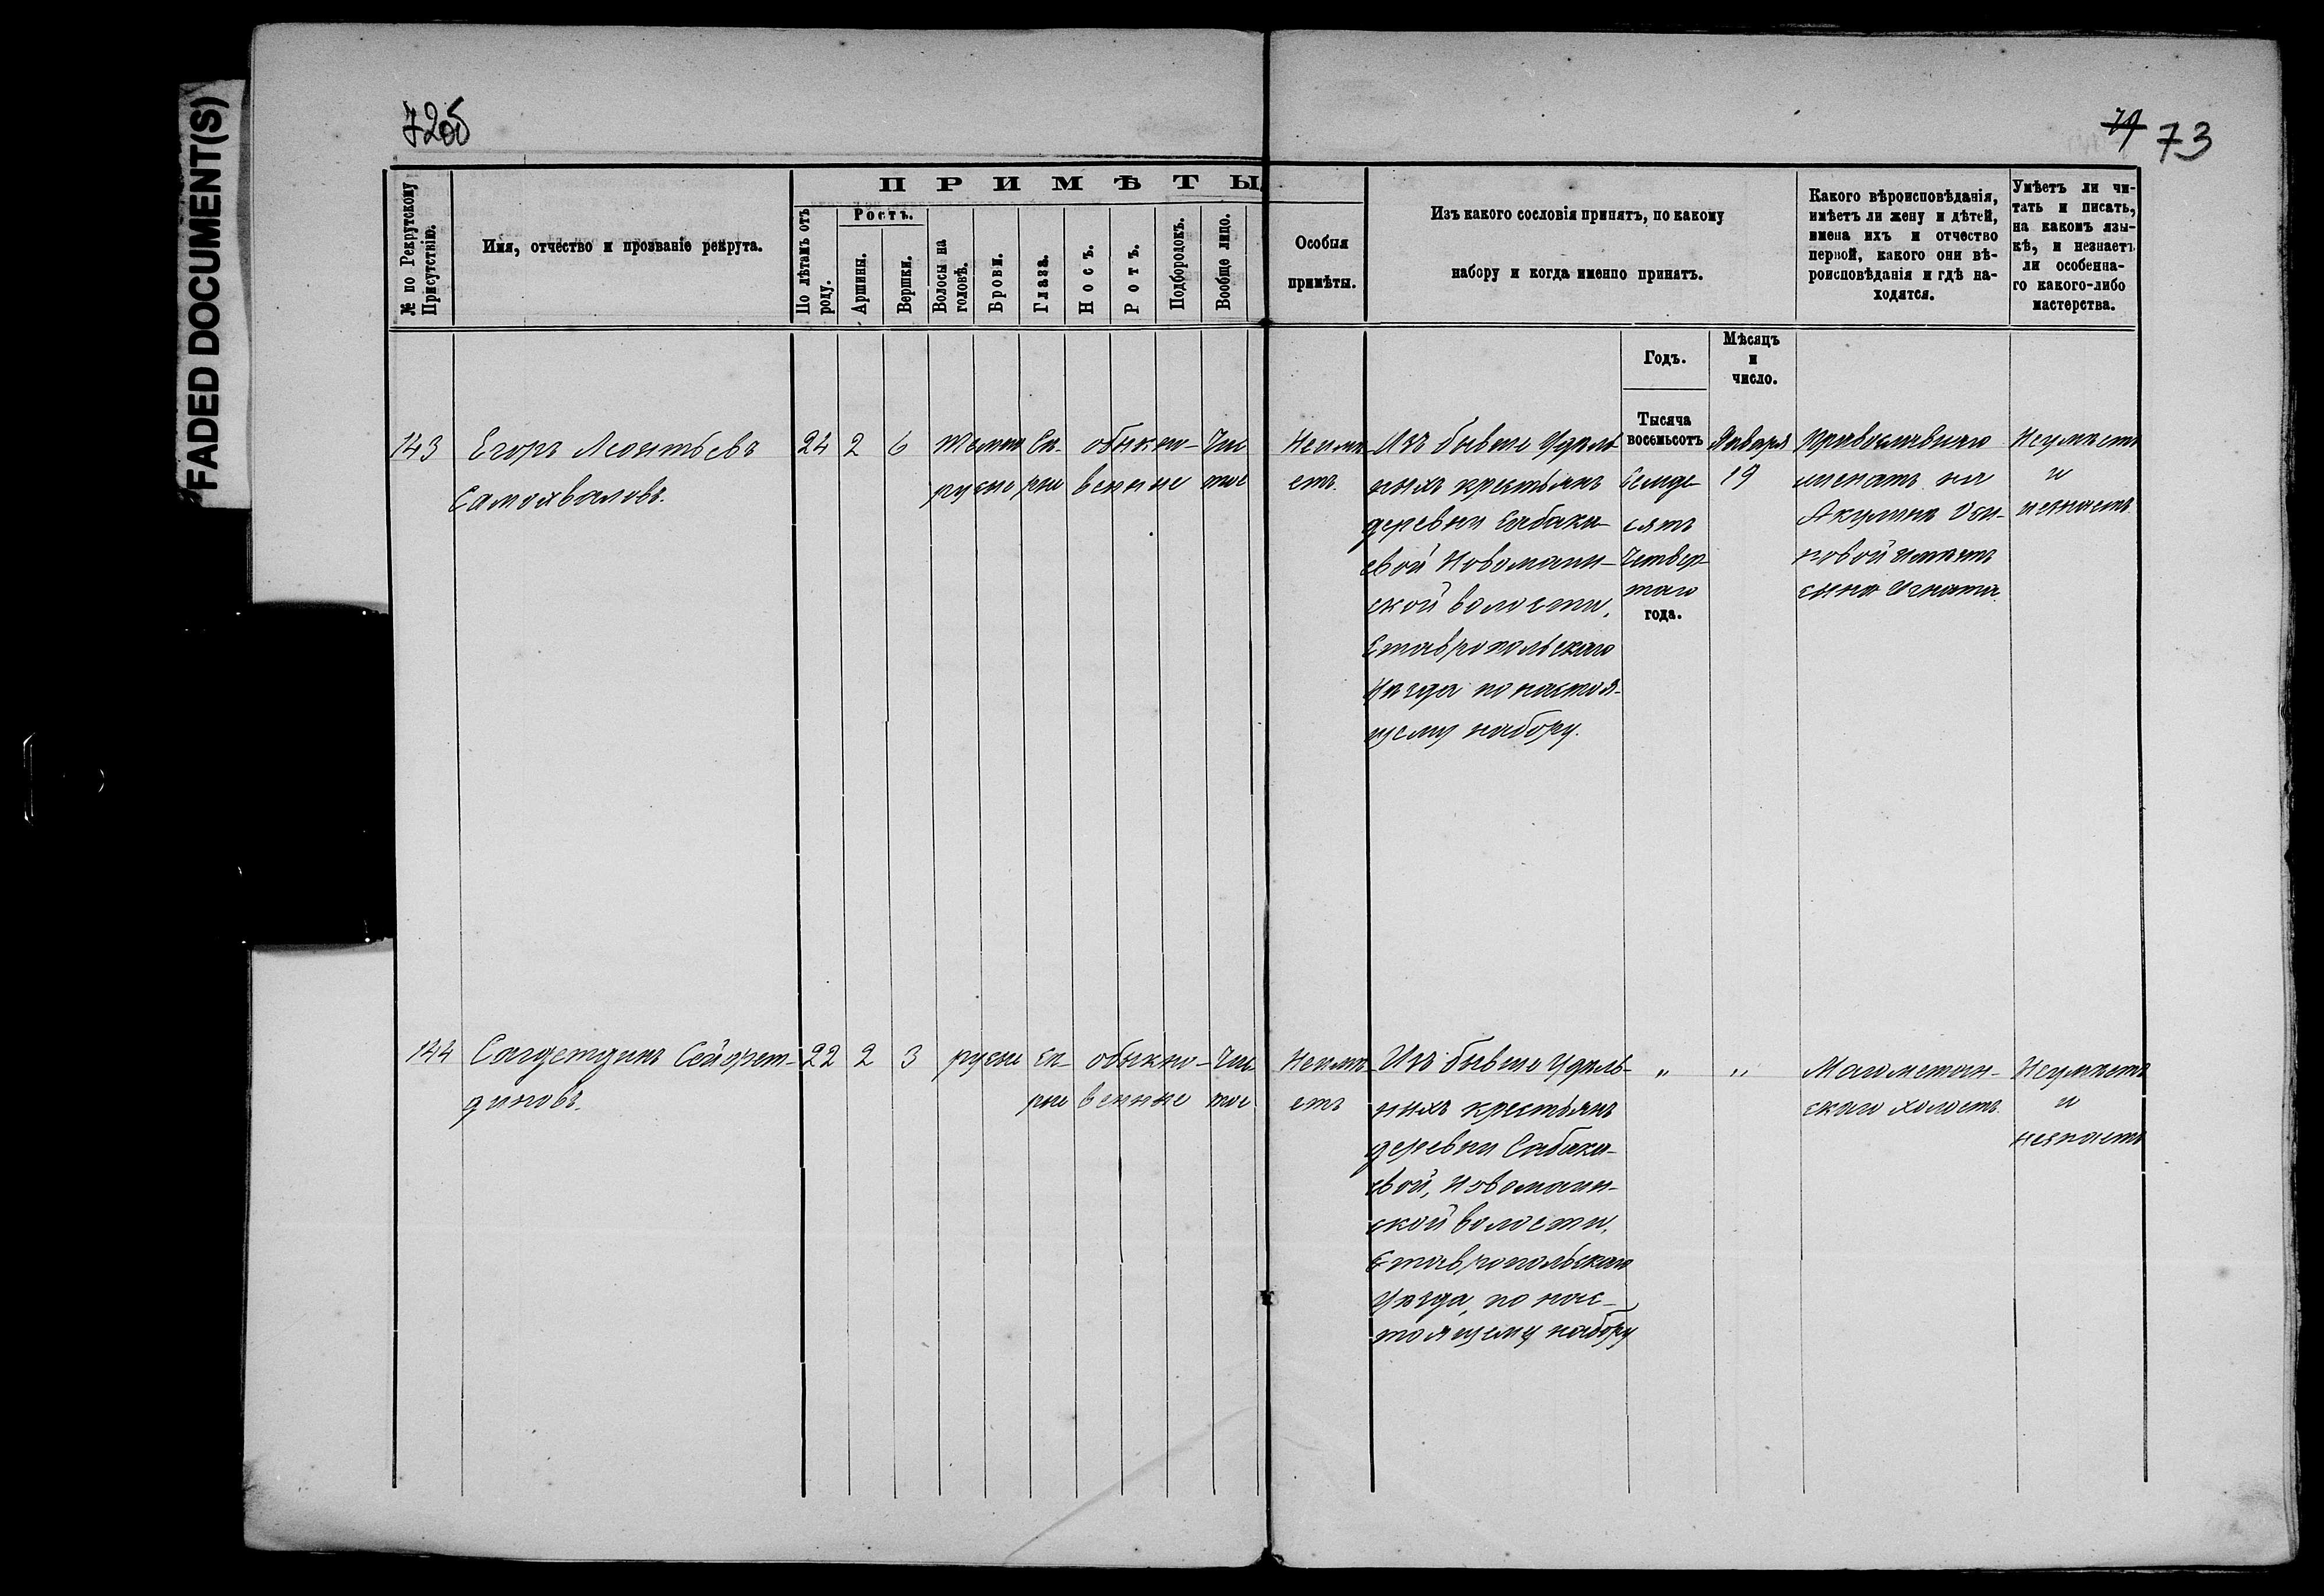 FADED DOCUMENT(S)
73
П Р И М Ѣ Т Ы
№ по Рекрутскому
Присутствію.
Имя, отчество и прозваніе рекрута.
По лѣтамъ отъ
роду.
Ростъ.
Аршины.
Вершки.
Волосы на
головѣ.
Брови.
Глаза.
Носъ.
Ротъ.
Подбородокъ.
Вообще лицо.
Особыя
примѣты.
Изъ какого сословія принятъ, по какому
набору и когда именно принятъ.
Какого вѣроисповѣданія,
имѣетъ ли жену и дѣтей,
имена ихъ и отчество
первой, какого они вѣ-
роисповѣданія и гдѣ на-
ходятся.
Умѣетъ ли чи-
тать и писать,
на какомъ язы-
кѣ, и незнаетъ
ли особенна-
го какого-либо
мастерства.
Годъ.
Мѣсяцъ
и
число.
143
Егоръ Леонтьевъ
Самохваловъ.
24 2 6
темно
русые
Сѣ-
рые
обыкно-
венные
Чис
тое
Неимѣ
етъ
Изъ бывше Удѣль
ныхъ крестьянъ
деревни Сабака-
евой Новомаин-
ской волости,
Ставропольскаго
Уѣзда по настоя-
щему набору.
Тысяча
восемьсотъ
Семде
сятъ
Четвер
таго
года.
Января
19
Православнаго
женатъ на
Акулинѣ Оси-
повой имѣетъ
сына Игната
Неумѣетъ
и
незнаетъ
144
Сагдетдинъ Сейфет-
диновъ.
22 2 3
русые
Сѣ-
рые
обыкно-
венные
Чис
тое
Неимѣ
етъ
Изъ бывше Удѣль-
ныхъ крестьянъ
деревни Сабака-
евой, Новомаин-
ской волости,
Ставропольскаго
Уѣзда, по нас-
тоящему набору
" "
Магометан-
скаго холостъ
Неумѣетъ
и
незнаетъ